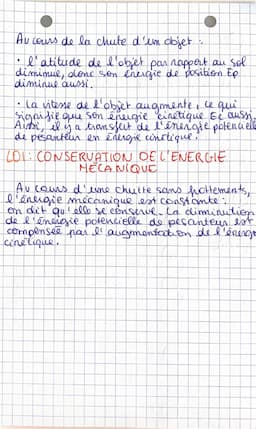 Au cours de la chute d'un objet :
• l'altitude de l'objet par rapport au sol
diminue, donc son énergie de position Ep
diminue aussi.
• La vitesse de l'objet augmente, ce qui
signifie que son énergie cinétique Ec aussi.
Ainsi, il y a transfert de l'énergie potentielle
de pesanteur en énergie cinétique.
LOI : CONSERVATION DE L'ENERGIE
MECANIQUE
Au cours d'une chute sans frottements,
l'énergie mécanique est constante :
on dit qu'elle se conserve. La diminution
de l'énergie potentielle de pesanteur est
compensée par l'augmentation de l'énergie
cinétique.